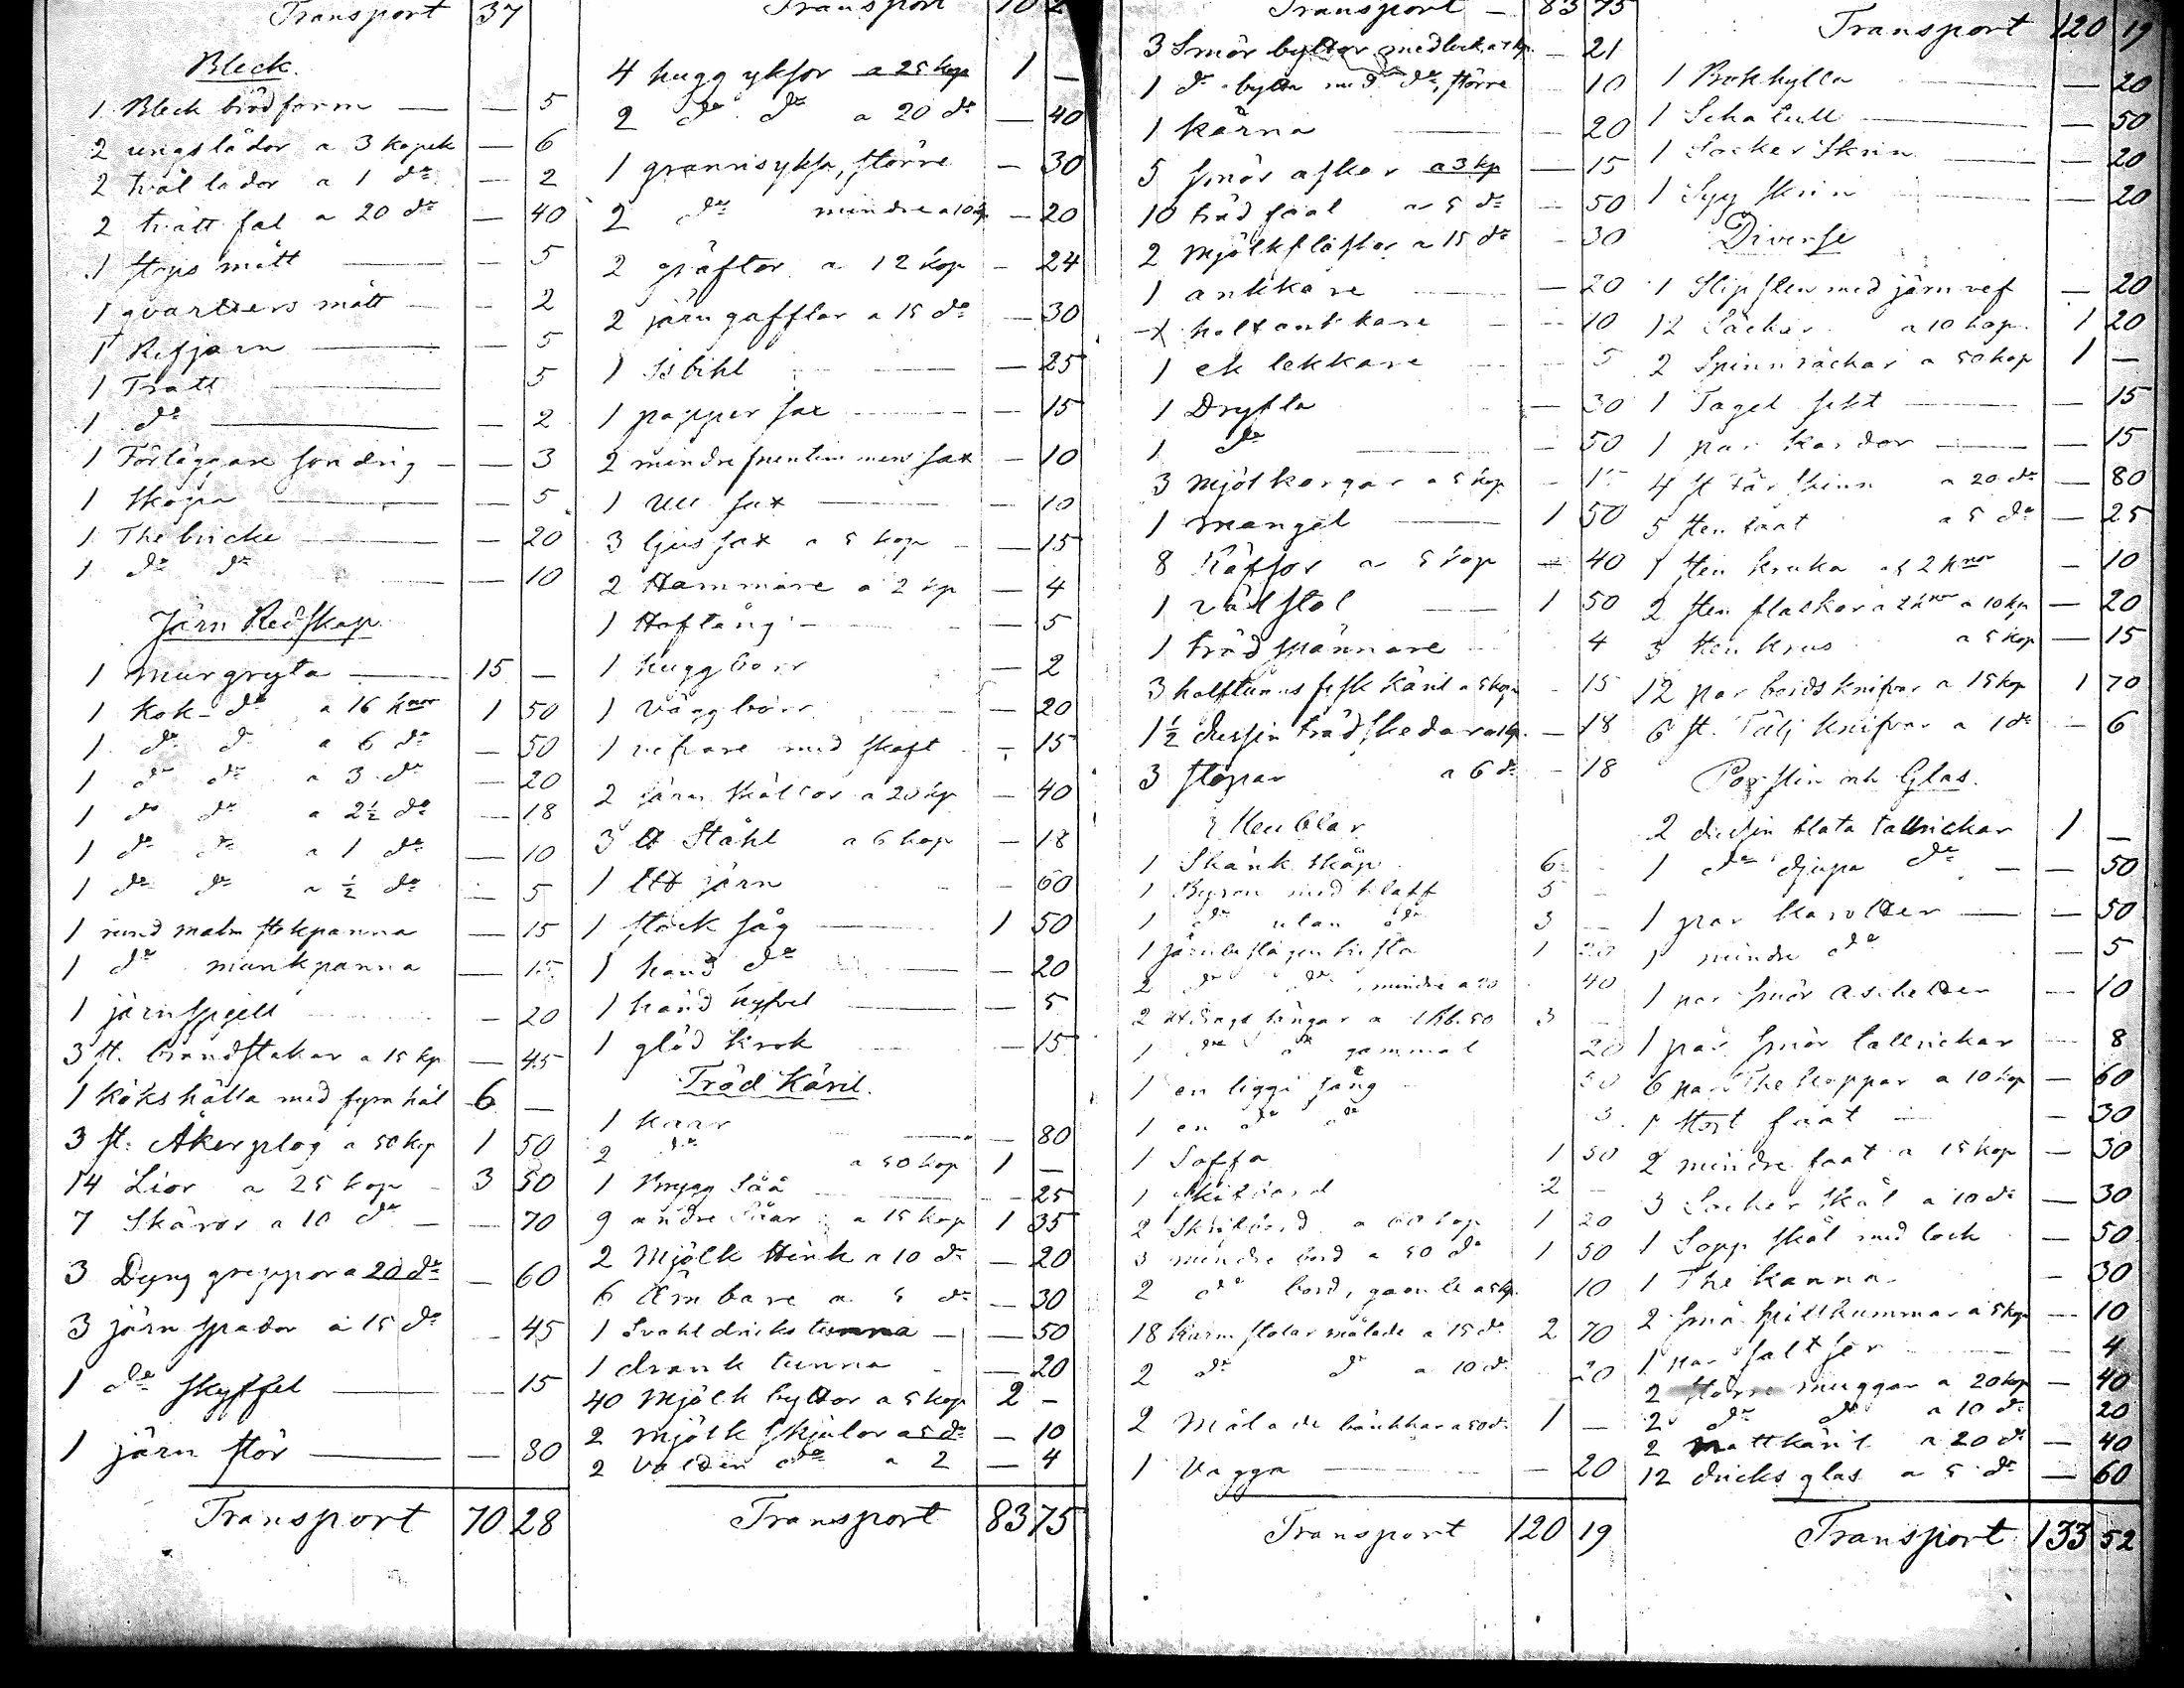 Transport 37
Bleck.
1 Bleck brödform — — 5
2 ungslådor a 3 kopek — 6
2 tvål lador a 1 do — 2
2 tvätt fat a 20 do — 40
1 stops mått — — 5
1 qvarters mått — — 2
1 Rifjärn — — 5
1 Tratt 5
1 do — — 2
1 Förläggare söndrig — — 3
1 Skopa — — 5
1 The bricka — — 20
1 do do — 10
Järn Redskap
1 murgryta — 15 —
1 Kok do a 16 knor 1 50
1 do do a 6 do — 50
1 do do a 3 do — 20
1 do do a 2½ do — 18
1 do do a 1 do — 10
1 do do a ½ do — 5
1 rund malm stekpanna — 15
1 do munkpanna — 15
1 järnspjell — 20
3 st. brandstakar a 15 kp — 45
1 kökshälla med fyra hål 6 —
3 st. Åkerplog a 50 kop 1 50
14 Lior a 25 kop 3 50
7 Skäror a 10 do — — 70
3 Dyng greppor a 20 do — 60
3 järn spador a 15 do — 45
1 do skyffel — — 15
1 järn stör — — 80
Transport 70 28
Transport 70 2
4 hugg yksor a 25 kop 1 —
2 do do a 20 do — 40
1 grannsyksa, större — 30
2 do mindre a 10 kp — 20
2 gräftor a 12 kop — 24
2 järn gafflar a 15 do — 30
1 Isbihl — 25
1 papper sax — — 15
2 mindre fruentimmers sax — 10
1 Ull sax — — 10
3 ljus sax a 5 kop — — 15
2 Hammare a 2 kp — 4
1 Hoftång — — 5
1 huggborr — 2
1 Väggborr — 20
1 refvare med skaft — 15
2 järn skållor a 20 kp — 40
3 lb Ståhl a 6 kop — 18
1 lb järn — 60
1 stock såg — 1 50
1 hand do — 20
1 hand hyfvel — — 5
1 glöd krok — 15
Träd Käril.
1 kaar — — 80
2 do a 50 kop 1 —
1 Brygg Såå — — 25
9 andre Såar a 15 kop 1 35
2 Mjölk stink a 10 do — 20
6 Ämbare a 5 do — 30
1 Svahldricks tunna — — 50
1 drank tunna — — 20
40 Mjölk byttor a 5 kop 2 —
2 Mjölk skjulor a 5 do — 10
2 do a 2 — 4
Transport 83 75
Transport — 83 75
3 Smör byttor med lock, a 7 kp. — 21
1 do bytta med do, större 10
1 kärna — — 20
5 smör askar a 3 kp — 15
10 träd faat a 5 do — 50
2 Mjölkflaskor a 15 do — 30
1 ankkare — — 20
1 halfankkare — 10
1 ek lekkare 5
1 Dryfla — 30
1 do — — 50
3 Mjölkorgar a 5 kop — 15
1 mangel — 1 50
8 Räfsor a 5 kop — 40
1 Väfstol — 1 50
1 trådspännare 4
3 halftunns fisk käril a 5 kop — 15
1½ dussin träd skedar a 1 kp. — 18
3 stopar a 6 do — 18
Meublar
1 Skänk skåp 6 —
1 Byron med klaff 5 —
1 do utan do 3 —
1 järnbeslagen kista 1 20
2 do do, mindre a 20 40
2 utdrags sängar a 1 Rb. 50 3 —
1 do do gammal 20
1 en liggi säng 50
1 en do do 3
1 Soffa 1 50
1 bord 2 —
2 Skrifbord a 60 kop 1 20
3 mindre bord a 50 do 1 50
2 do bord, gamle a 5 kp. 10
18 karm stolar målade a 15 do 2 70
2 do do a 10 do 20
2 Målade bänkkar a 50 do 1 —
1 Vagga — — 20
Transport 120 19
Transport 120 19
1 Bokhylla — — 20
1 Schatull — — 50
1 Socker Skrin — — 20
1 Syy Skrin — — 20
Diverse
1 Slipsten med järnvef — 20
12 Säckar a 10 kop. 1 20
2 Spinnråckar a 50 kop 1 —
1 Tagel sikt — — 15
1 par kardor — — 15
4 st Fårskinn a 20 do — 80
5 Sten faat a 5 do — 25
1 Sten kruka a 2 knor — 10
2 Sten flaskor a 2 knor a 10 kp — 20
3 Sten krus a 5 kop — 15
12 par bordsknifvar a 15 kp 1 70
6 st. Tälj knifvar a 1 do — 6
Porslin och Glas.
2 dussin flata tallrickar 1 —
1 do djupa do — — 50
1 par karotter — — 50
1 mindre do — 5
1 par smör aschetter — 10
1 par smör tallrickar — 8
6 par The koppar a 10 kop — 60
1 Stort faat — — 30
2 mindre faat a 15 kop — 30
3 Socker Skål a 10 do — 30
1 Sopp Skål med lock — 50
1 The kanna — 30
2 små spillkummar a 5 kop — 10
1 par saltser — — 4
2 större muggar a 20 kop — 40
2 do do a 10 do 20
2 nattkäril a 20 do — 40
12 dricks glas a 5 do — 60
Transport 133 52